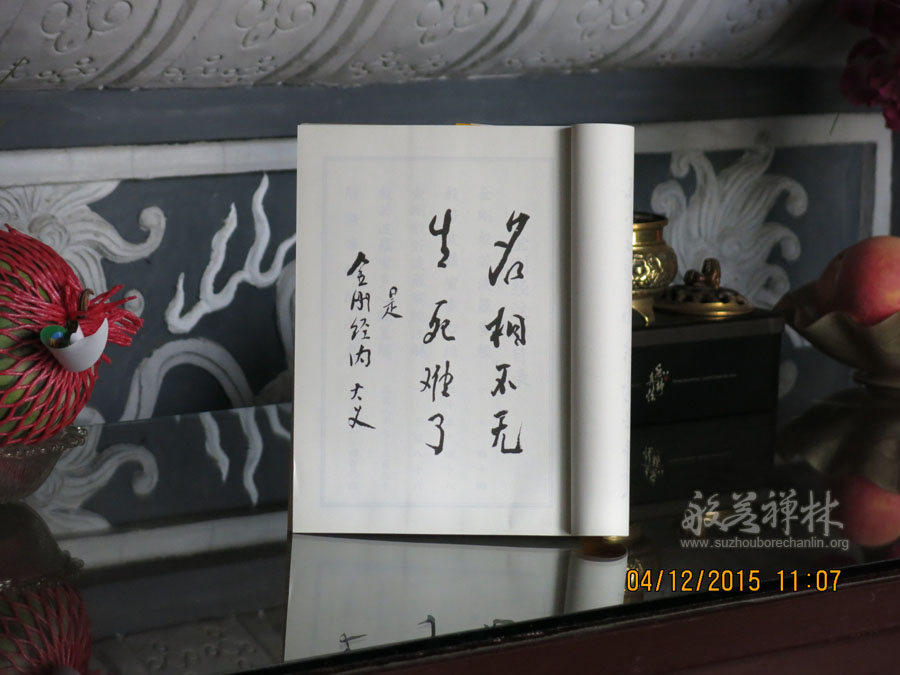 名相不无
生死难了
是
金刚经内大义
般若禅林
www.suzhouborechanlin.org
04/12/2015 11:07